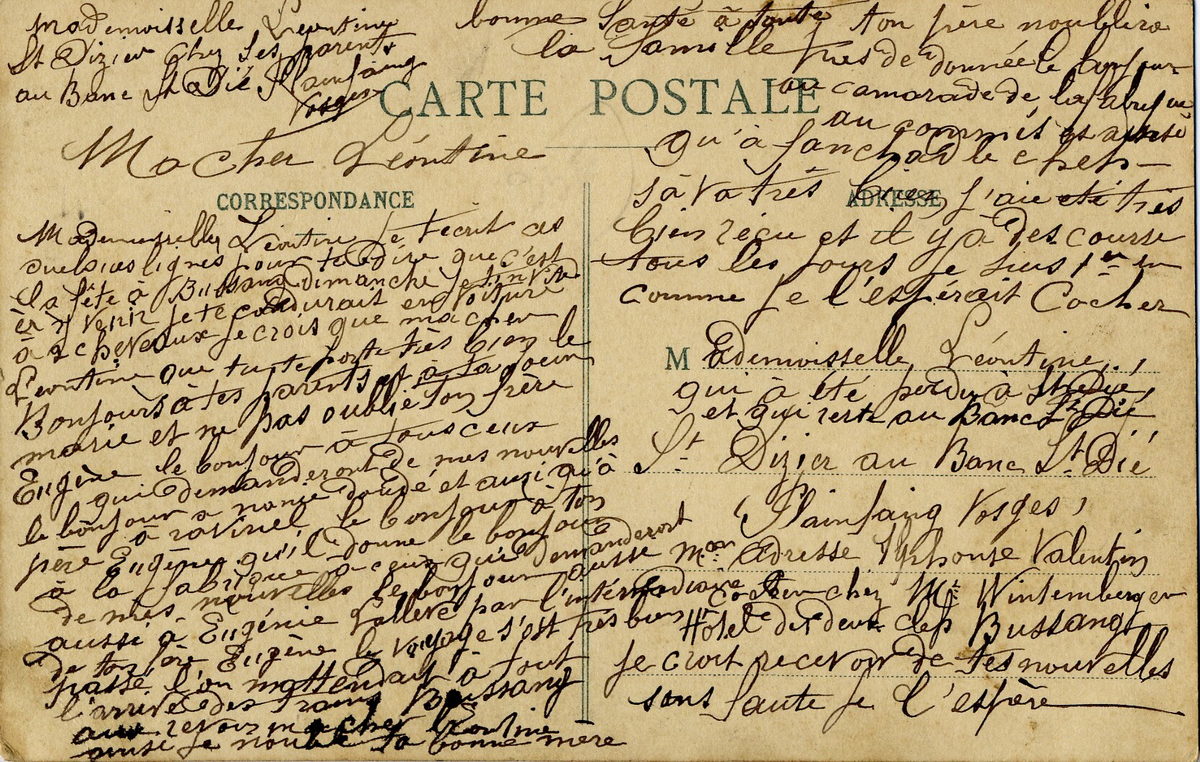 Mademoisselle Léontine
St Dizier chez ses parents
au Banc St Dié Plainfaing
Vosges
bonne santé à toute
la famille
ton père noublira
pas de donnée le bonjour
au camarade de la fabrique
au commis et aussi
qu'à
CARTE POSTALE
Macher Léontine
sava très bien j'aie eté très
bien réçu et il y à des course
tous les jours je suis 1er en
comme je l'espérait Cocher
CORRESPONDANCE
ADRESSE
Mademoiselle Léontine je técrit ces
quelques lignes pour te dire que c'est
la fête à Bussang dimanche je tinvite
èr à venir je te condurait en voiture
à 2 chevaux je crois que macher
Léontine que tu te porte très bien le
Bonjours à tes parents et à ta soeur
marie et ne pas oublié ton frère
Eugène le bonjour à tous ceux
qui demanderont de mes nouvelles
le bonjour à
à ravinel le bonjour à ton
père Eugène qu'il donne le bonjour
à la fabrique à ceux qui demanderont
de mes nouvelles le bonjour aussi
aussi à Eugénie par l'intermédiaire
de ton père Eugène le voyage s'est très bien
passé l'on mattendait à tout
l'arrivée des trains Bussang
aux revoir macher Léontine
ainsi je noublie ta bonne mère
M Edemoisselle Léontine
qui à été perdu à St Dié
et qui reste au Banc St Dié
St Dizier au Banc St Dié
(Plainfaing Vosges)
mon adresse Alphonse Valentin
Cocher chez Mr Wintemberger
Hôtel des deux clefs Bussang
je croit recevoir de tes nouvelles
sans faute je l'espère